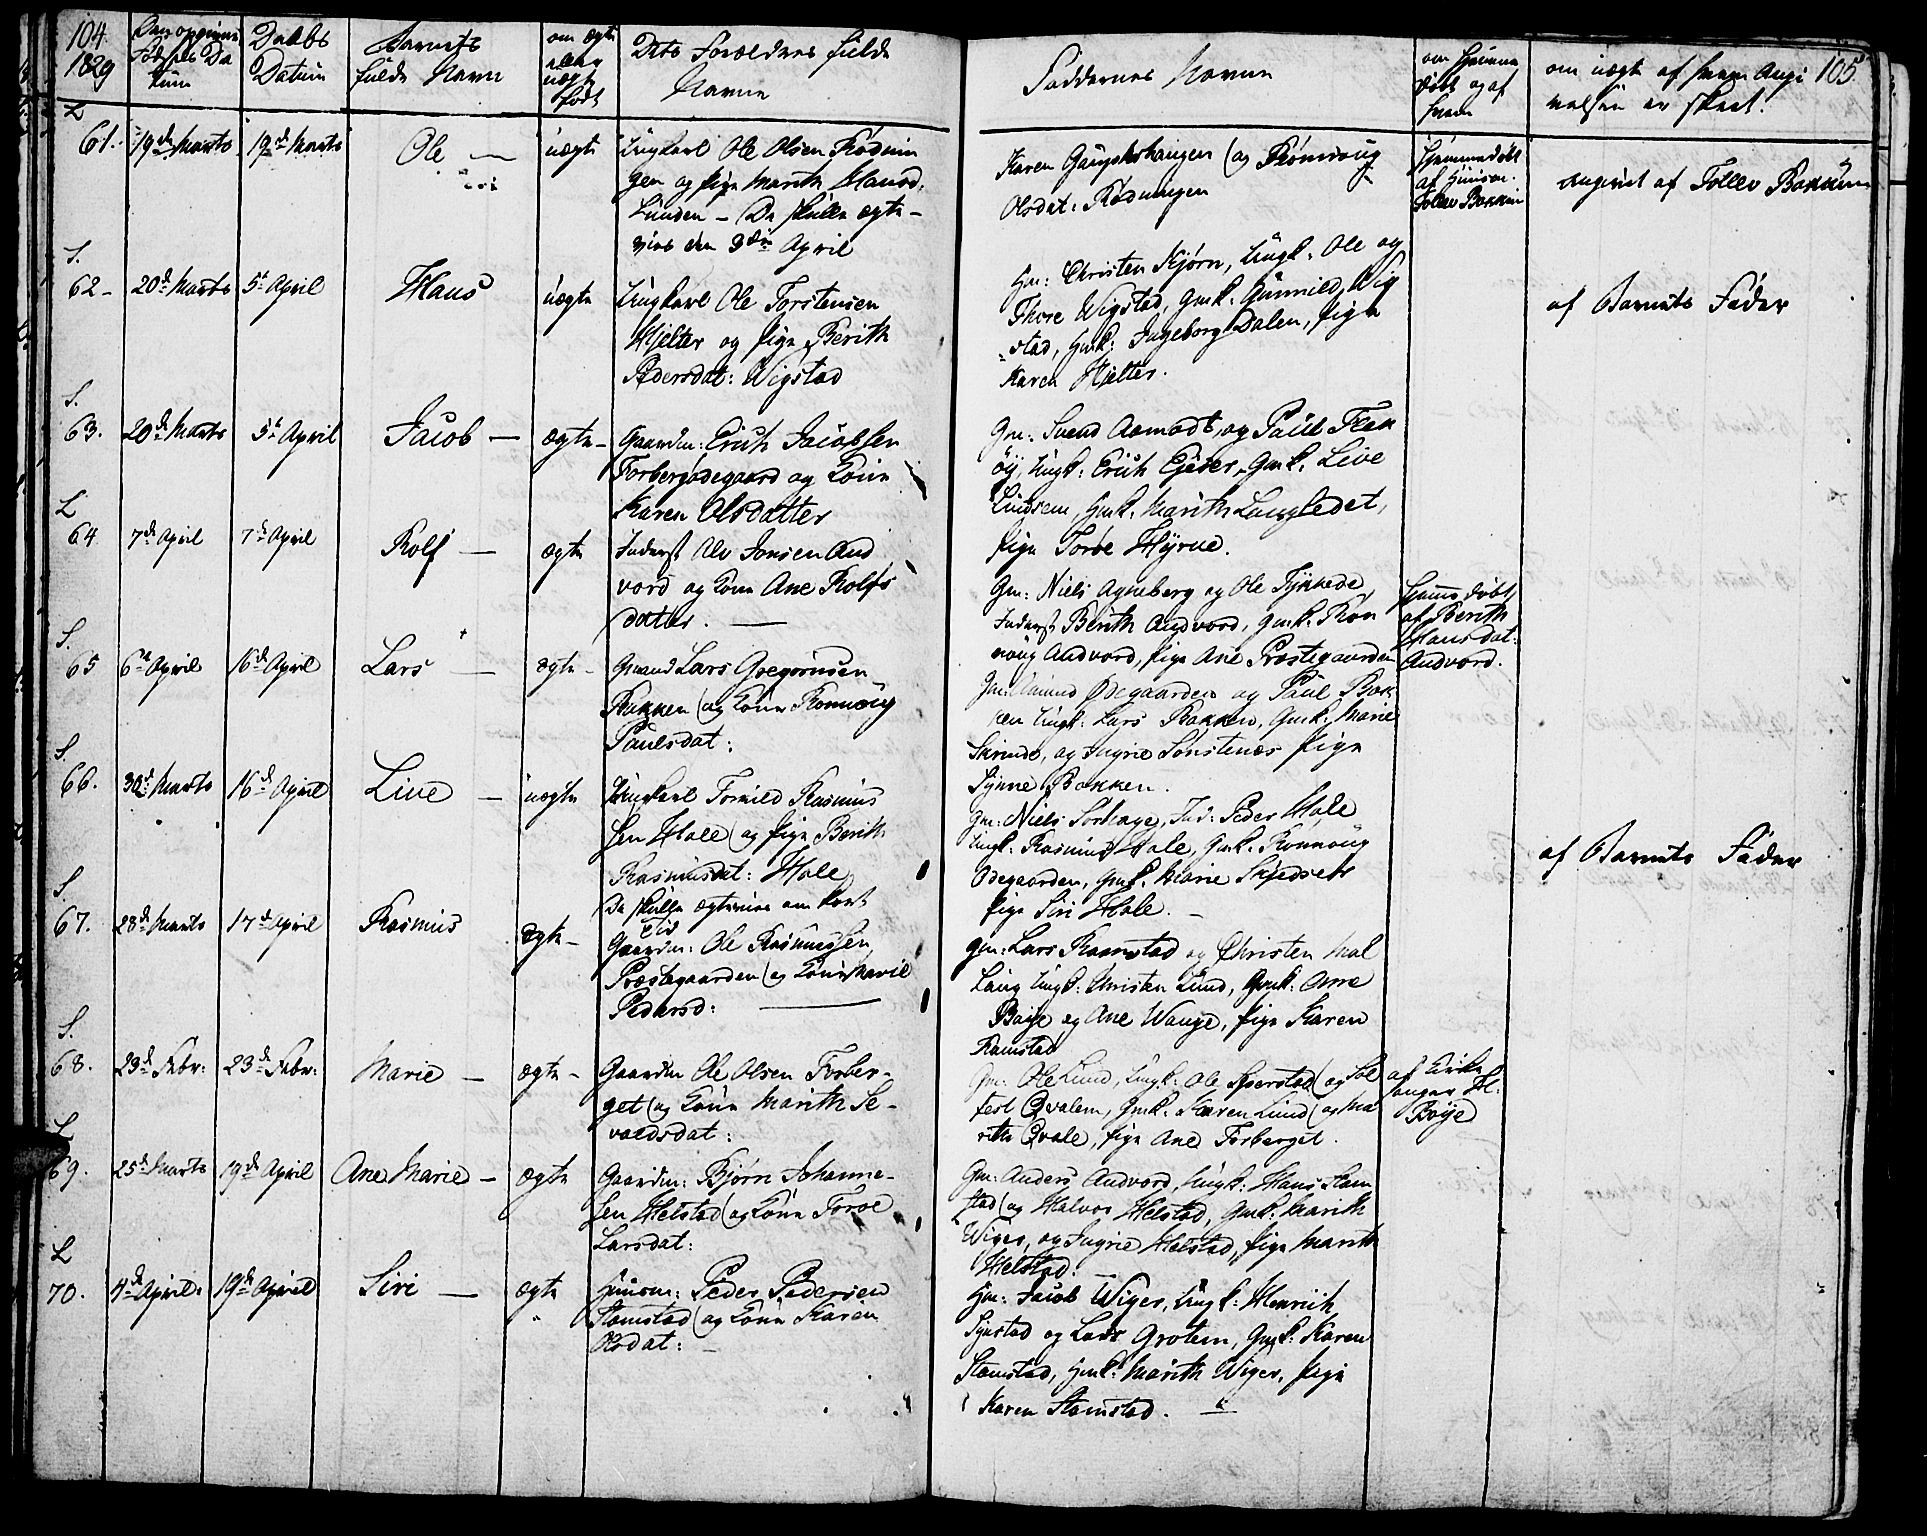 104
1829
Den opgivne
Fødsels Da
tum
Daabs
Datum
Barnets
fulde Navn
om ægte
eller
uægte
født
Dets Forældres fulde
Navne
Faddernes Navne
om hjemme
døbt og af
hvem
om uægte af hvem Angi
velsen er skeet.
105
L
61.
19de Marts
19de Marts
Ole
uægte
Ungkarl Ole Olsen Rødnin
gen og pige Marith
Lunden - De skulle ægte-
vies den 3die April
Karen Gaupskshaugen (og Rønnoug
Olsdat: Rødningen
Hjemmedøbt
af
Tollev Bakken
Angivet af Tollev Bakken
S.
62-
20de Marts
5te April
Hans
uægte
Ungkarl Ole Torstensen
Hjelter og pige Berith
Pedersdat: Wigstad
Gm: Christen Kjørn, Ungk: Ole og
Thore Wigstad, Gmk: Gunnild Wig
stad, Gmk: Ingeborg Dalen, pige
Karen Hjelter.
af Barnets Fader
S.
63.
20de Marts
5te April
Jacob -
ægte-
Gaardm: Erich Jacobsen
Forbergødegaard og Kone
Karen Olsdatter
Gm: Svend Aamodt, og Paul Flek
øy, Ungk: Erich Gjeser, Gmk. Live
Lindsem, Gmk. Marith Langledet,
pige Toroe Hyrue.
L
64
7de April
7de April
Rolf -
ægte
Inderst Ole Jonsen And
vord og Kone Ane Rolfs
datter. -
Gm: Niels Agneberg og Ole Tykkede,
Inderst Berith Andvord, Gmk. Røn
noug Andvord, pige Ane Præstegaarden
Hjemmedøbt
af Berith
Hansdat:
Andvord.
S.
65
6te April
16de April
Lars -
ægte -
Gmand Lars Gregoriusen
Bakken (og Kone Rønnoug
Paulsdat:
Gm: Amund Ødegaarden og Paul Bak
ken Ungk: Lars Bakken, Gmk. Marie
Skrinde, og Ingrie Sønstenæs pige
Synne Bakken.
S.
66.
30de Marts
16de April
Live -
uægte
Ungkarl Tormild Rasmus
sen Hole (og pige Berith
Rasmusdat: Hole
De skulle ægtevies om kort
Tid
Gm: Niels Sørhage, Ind: Peder Hole
Ungk: Rasmus Hole, Gmk. Rønnoug
Ødegaarden, Gmk. Marie Skjedset
pige Siri Hole. -
af Barnets Fader
S.
67.
28de Marts
17de April
Rasmus
ægte-
Gaardm: Ole Rasmussen
Præstegaarden (og Kone Marit
Pedersd:
Gm: Lars Kramstad og Christen Mal
Laug Ungk: Christen Lund, Gmk: Anne
Boije og Ane Wange, pige Karen
Ramstad
S.
68.
23de Febr:
23de Febr:
Marie -
ægte -
Gaardm Ole Olsen Forber-
get (og Kone Marith Se-
valdsdat:
Gm: Ole Lund, Ungk: Ole Sperstad (og Sol
fest Qvalem, Gmk. Karen Lund (og Ma
rith Qvale, pige Ane Forberget.
af Kirke
sanger Hl:
Boije
L
69.
25de Marts
19de April
Ane Marie -
ægte
Gaardm: Bjørn Johanne-
sen Helstad (og Kone Toroe
Larsdat:
Gm: Anders Andvord, Ungk: Hans Stam
stad (og Halvor Helstad, Gmk: Marith
Wiger, og Ingrie Helstad, pige Marith
Helstad: -
L
70.
4de April
19de April
Siri -
ægte
Huusm: Peder Pedersen
Stamstad (og Kone Karen
Olsdat: -
Hm: Jacob Wiger, Ungk: Henrich
Synstad og Lars Grotem, Gmk: Karen
Stamstad, Hmk: Marith Wiger, pige
Karen Stamstad.